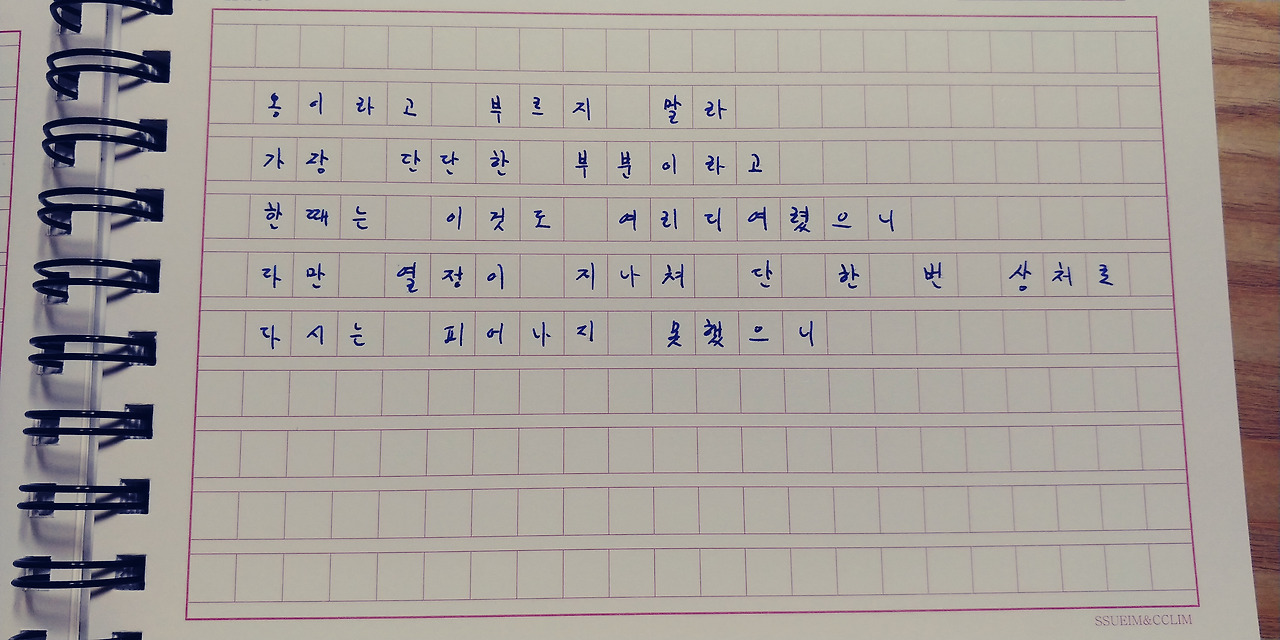 옹이라고 부르지 말라
가장 단단한 부분이라고
한때는 이것도 여리디여렸으니
다만 열정이 지나쳐 단 한 번 상처로
다시는 피어나지 못했으니
SSUEIM&CCLIM